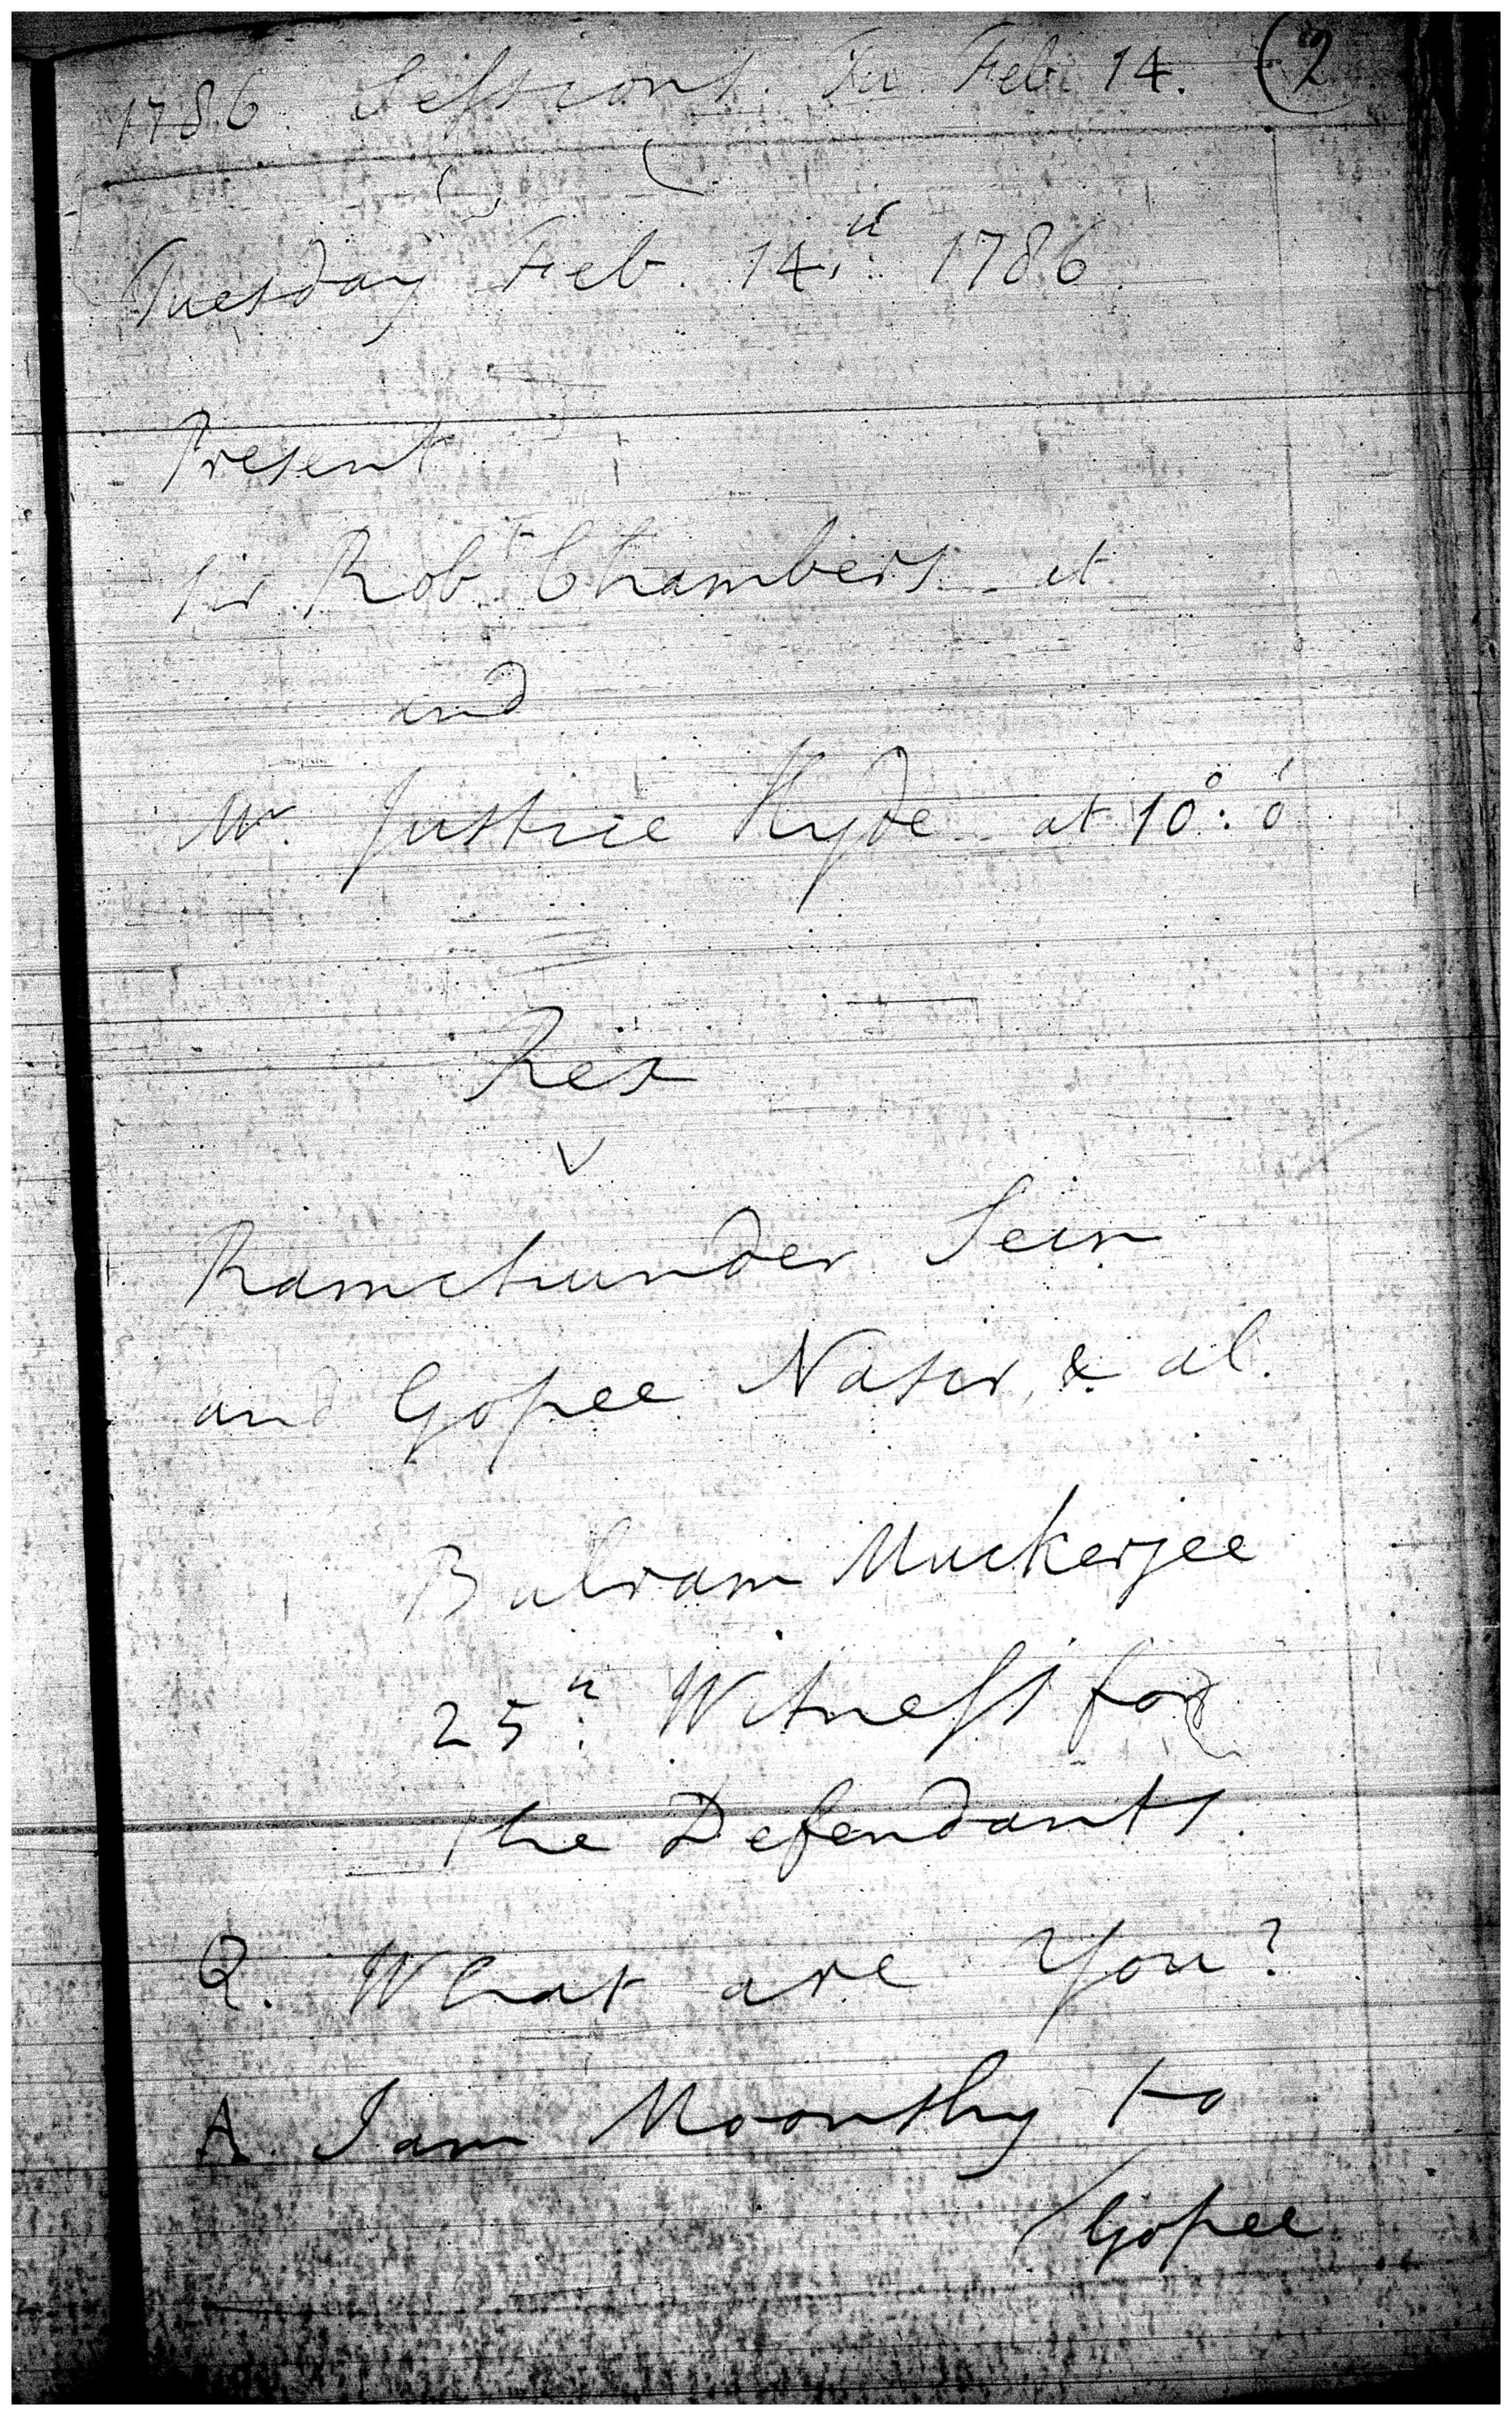 1786. Sessions. Tu Feb. 14. (2
Tuesday Feb. 14.th 1786.
Present
Sir Robt. Chambers at
and
Mr. Justice Hyde at 10°: 0'
Rex
v
Ramchunder Sein
and Gopee Nasir, & al.
Bulram Muckerjee
25.th Witness for
the Defendants.
Q. What are You?
A. I am Moonshy to
Gopee